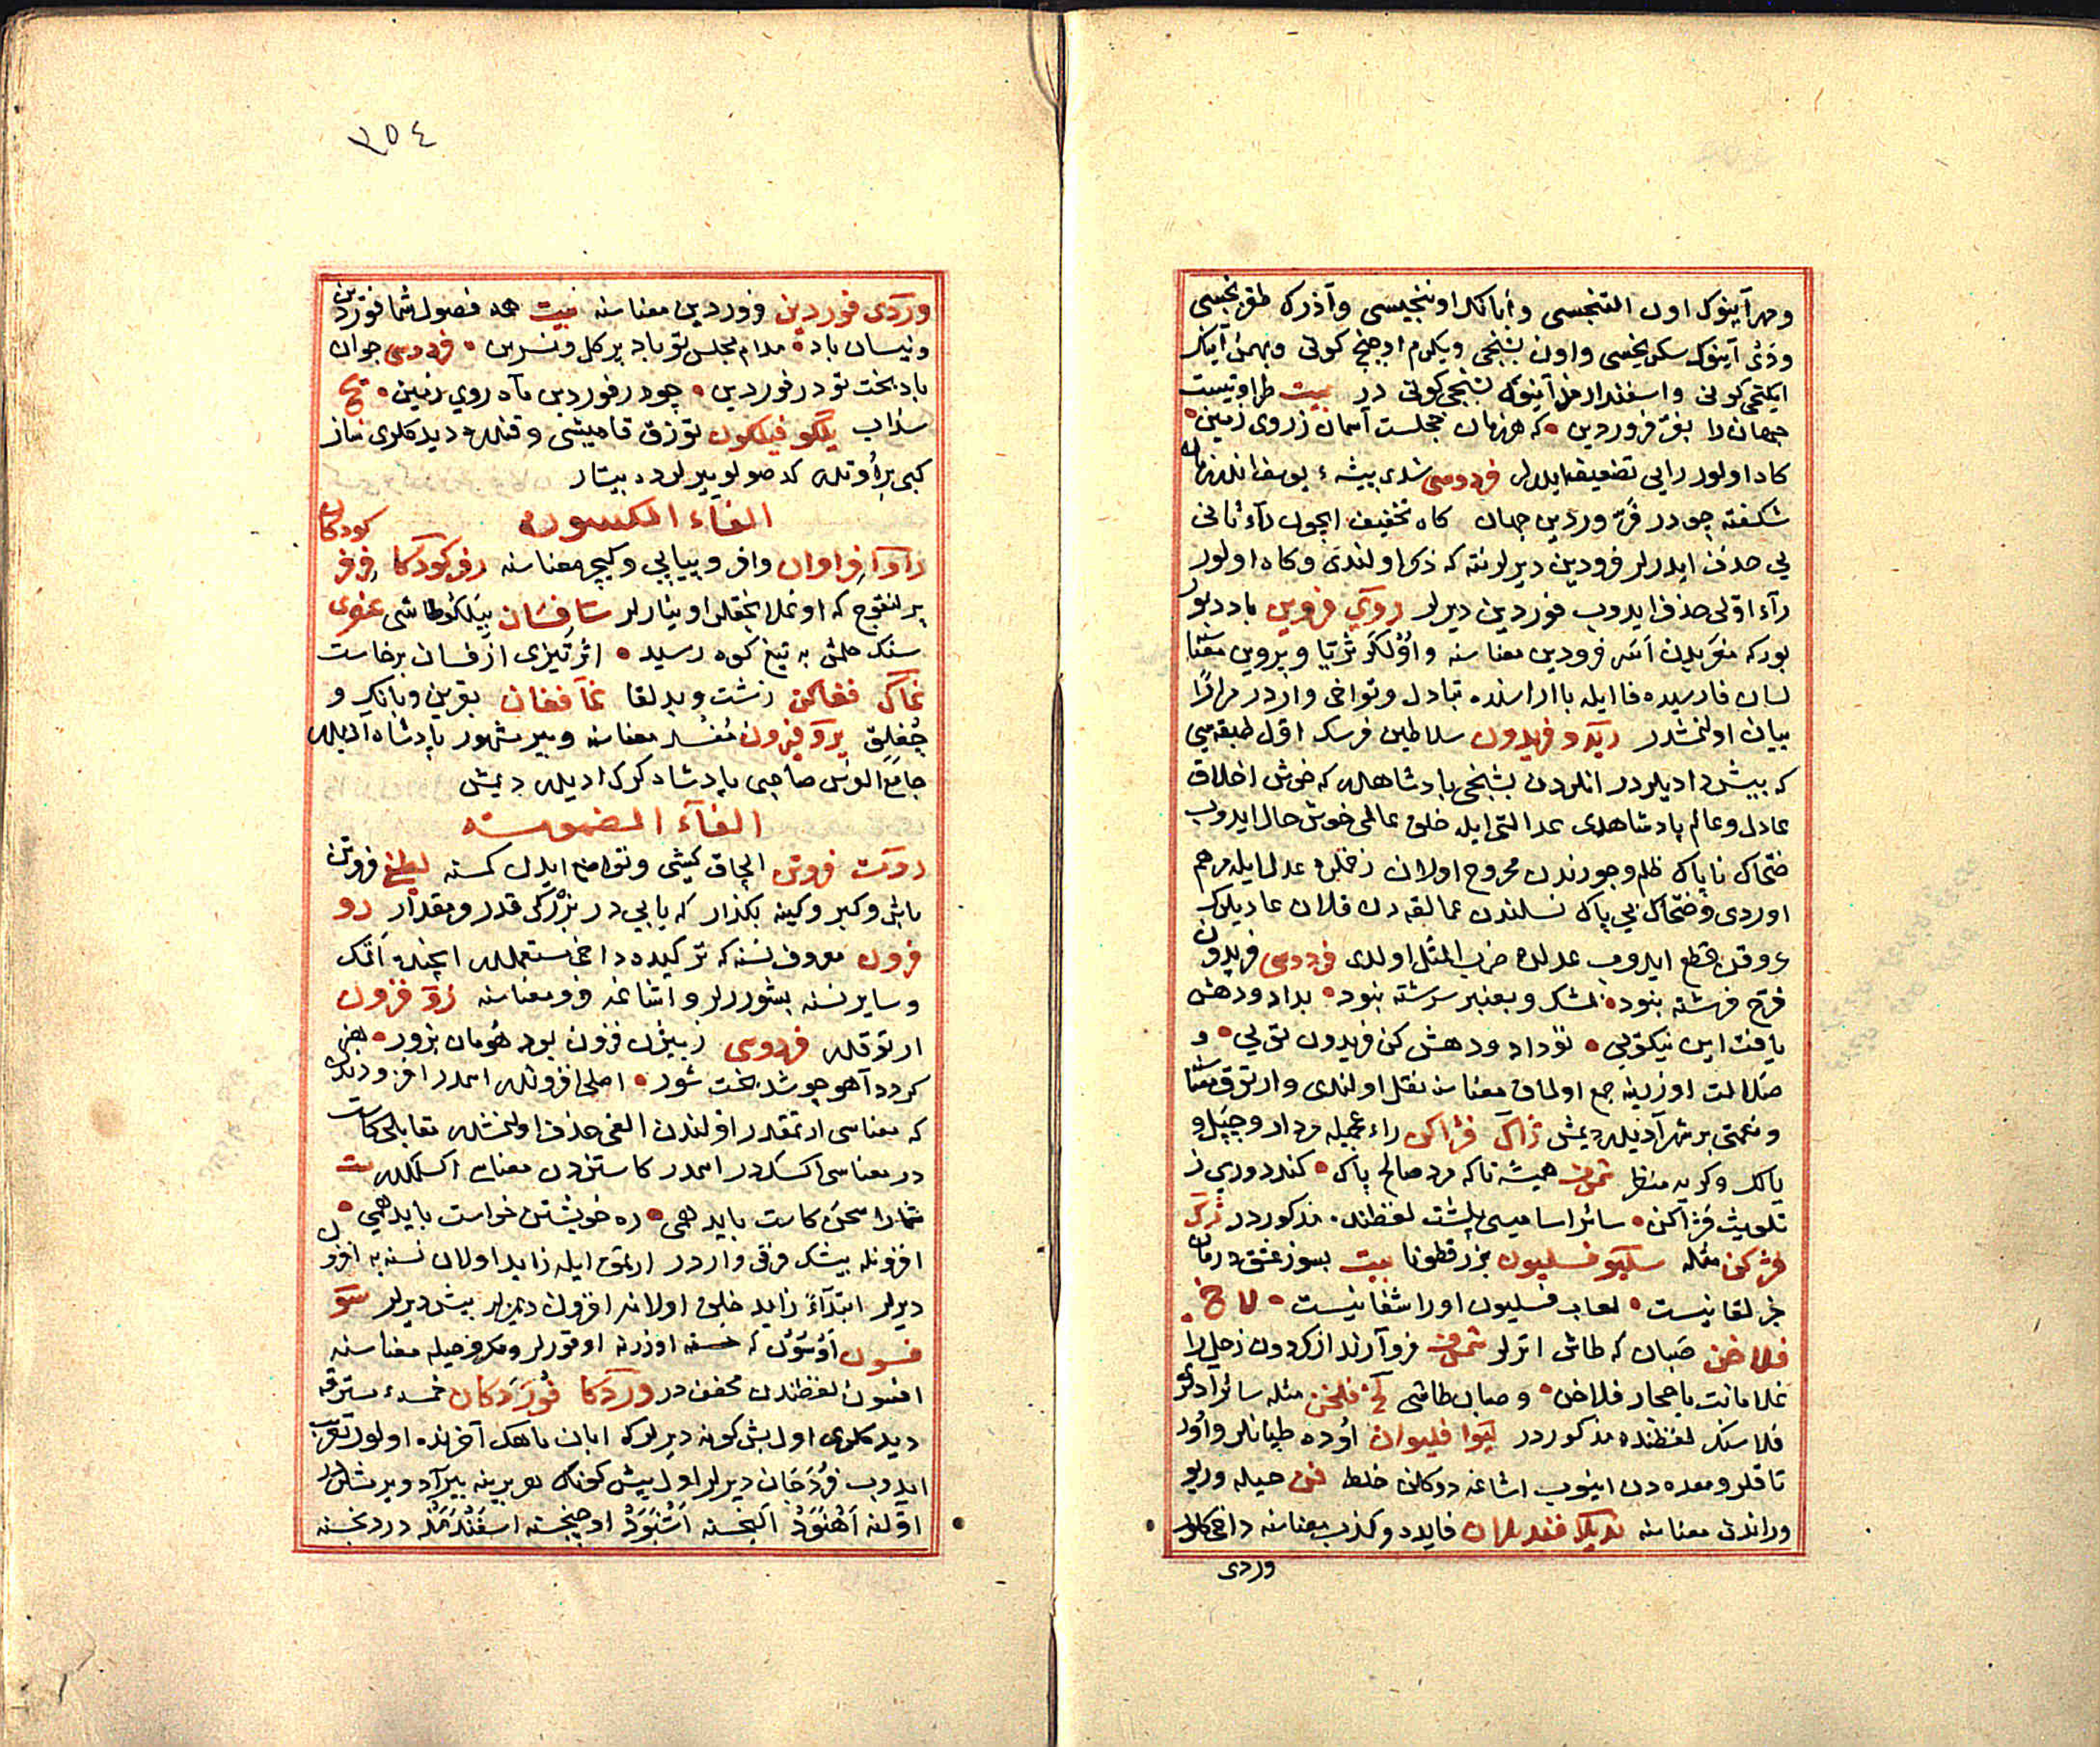 ومهر آینوك اون التنجسی وأبانك اوننجیسی وآذرك طقزنجسی
ودَیْ آینوك سکزنجیسی واون بشنجی ویکرم اوچنجی کونی وبهمن آینك
ایکنجی کونی واسفندارمذ آینوك بشنجی کونی در بیت طراوتیست
جهان را بفرّ فروردین که هر زمان خجلست آسمان ز روی زمین
کاه اولور رایی تضعیف ایدرلر فردوسی شدی بیشه
شکفته چو در فرّوردین جهان کاه تخفیف ایچون رآء ثانی
یی حذف ایدرلر فرودین دیرلر نته که ذکر اولندی وکاه اولور
رآء اوّلی حذف ایدوب فوردین دیرلر روی فروین باد دبور
بودکه فرودین معناسنه واُولکر ثریّا وپروین معناسنه
لسان فارسیده فا ایله با اراسنده تبادل وتواخی واردر مرارًا
بیان اولنمشدر ریدو فریدون سلاطین فرسك اوّل طبقه سی
که پیشدادیلردر انلردن بشنجی پادشاهدر که خوش اخلاق
عادل وعالم پادشاهدی عدالتی ایله خلق عالمی خوش حال ایدوب
ضحّاك ناپاك ظلم وجورندن مجروح اولان زخملره عدل ایله مرهم
اوردی وضحّاك بی پاك نسلندن عمالقه دن قلان عادیلرك
عروقن قطع ایدوب عدلده ضرب المثل اولدی فردوسی فریدون
فرّخ فرشته نبود بمشك وبعنبر سرشته نبود بداد ودهش
یافت این نیکویی تو داد ودهش کن فریدون تویی و
ضلالت اوزرینه جمع اولماق معناسنه نقل اولندی وارتوق معناسنه
ونعمتی بر شهر آدیدر دیمش ژاك فژاکن راء عجمیله مردار وچپل و
پالك وکریه منظر شمس همیشه تا که مرد صالح پاك کند دوری ز
تلویث فژاکن سائر اسامیسی پلشت لفظنده مذکوردر ژك
فژکن مثله سلیو فسلیون بزر قطونا بیت بسوز عشق درمان
جز لقا نیست لعاب فسلیون اورا شفا نیست لاخ
فلاخن صَبان که طاش اترلر شمس فرو آرند از کردون زحل را
غلامانت باحجار فلاخن وصبان طاشی لخ فلخن مثله سائر آدلری
فلاسنك لفظنده مذکوردر لیوا فلیوان اُوده طپانلر واُورد
تاقلر ومعده دن اینوب اشاغه دوکلن خلط فن حیله وریو
وراندن معناسنه فایده وکذب معناسنه داخی کلور
وردی
٢٥٤
وردی فوردین فروردین معناسنه بیت همه فصول شما فوردین
ونیسان باد مدام مجلس تو باد پر کل ونسرین فردوسی جوان
باد بخت تو در فوردین چو در فوردین ماه روی زمین
سذاب یلکو فیلکون توزق قامیشی وقنلره دیدکلری نباز
کبی بر اُوتدر که صولو ییرلرده بیتار
الفاء المکسوره
راوا فراوان وافر وپیاپی وکیچ معناسنه رفرکودکا فرفر کودکان
بر لنقوج که اوغلانجقلر اوینارلر سا فسان بیلکو طاشی عنصری
سنك حلمش به تیغ کوه رسید اثر تیزی از فسان برخاست
غاك فغاکن زشت وبد لقا غا فغان نفرین وبانك و
چغلق یرو فیرون مُفْسد معناسنه وبیر مشهور پادشاه آدیدر
جامع الفرس صاحبی پادشاه کرك ادیدر دیمش
الفآء المضمومه
روت فروتن الچاق کیشی وتواضع ایدن کمسنه لطیفی فروتن
باش وکبر وکینه بکذار که یابی در بزرکی قدر ومقدار رو
فرون معروف نسنه که ترکیده داخی مستعملدر ایچنده اتمك
وسایر نسنه بشوررلر واشاغه فرو معناسنه زو فزون
ارتوقدر فردوسی ز بیژن فزون بود هومان بزور هنر
کردد آهو چو شد بخت شور اصلی افزوندر اسمدر افزودندن
که معناسی ارتمقدر اوّلندن الفی حذف اولنمشدر مقابلی کاست
در معناسی اکسکدر اسمدر کاستن دن معناسی اکسلمکدر بیت
شمارا سخن کاست باید همی ره خویشتن خواست باید همی
افزونله بیشك فرقی واردر ارتمق ایله زاید اولان نسنه به افزون
دیرلر ابتدآءً زاید خلق اولانه افزون دیمزلر بیش دیرلر سو
فسون اوسون که خسته اوزرنه اوقورلر ومکر وحیله معناسنه
افسون لفظندن مخففدر وردکا فوردکان خمسهء مسترقه
دیدکلری اول بش کونه دیرلر که ابان ماهك آخرنده اولور تعریب
ایدوب فُرْدَجان دیرلر اول بش کونك هر برینه بیر آد ویرمشلردر
اوّلنه اَهْنَوَدْ ایکنجسنه اُشْتَوَدْ اوچنجسنه اسفندمد دردنجسنه